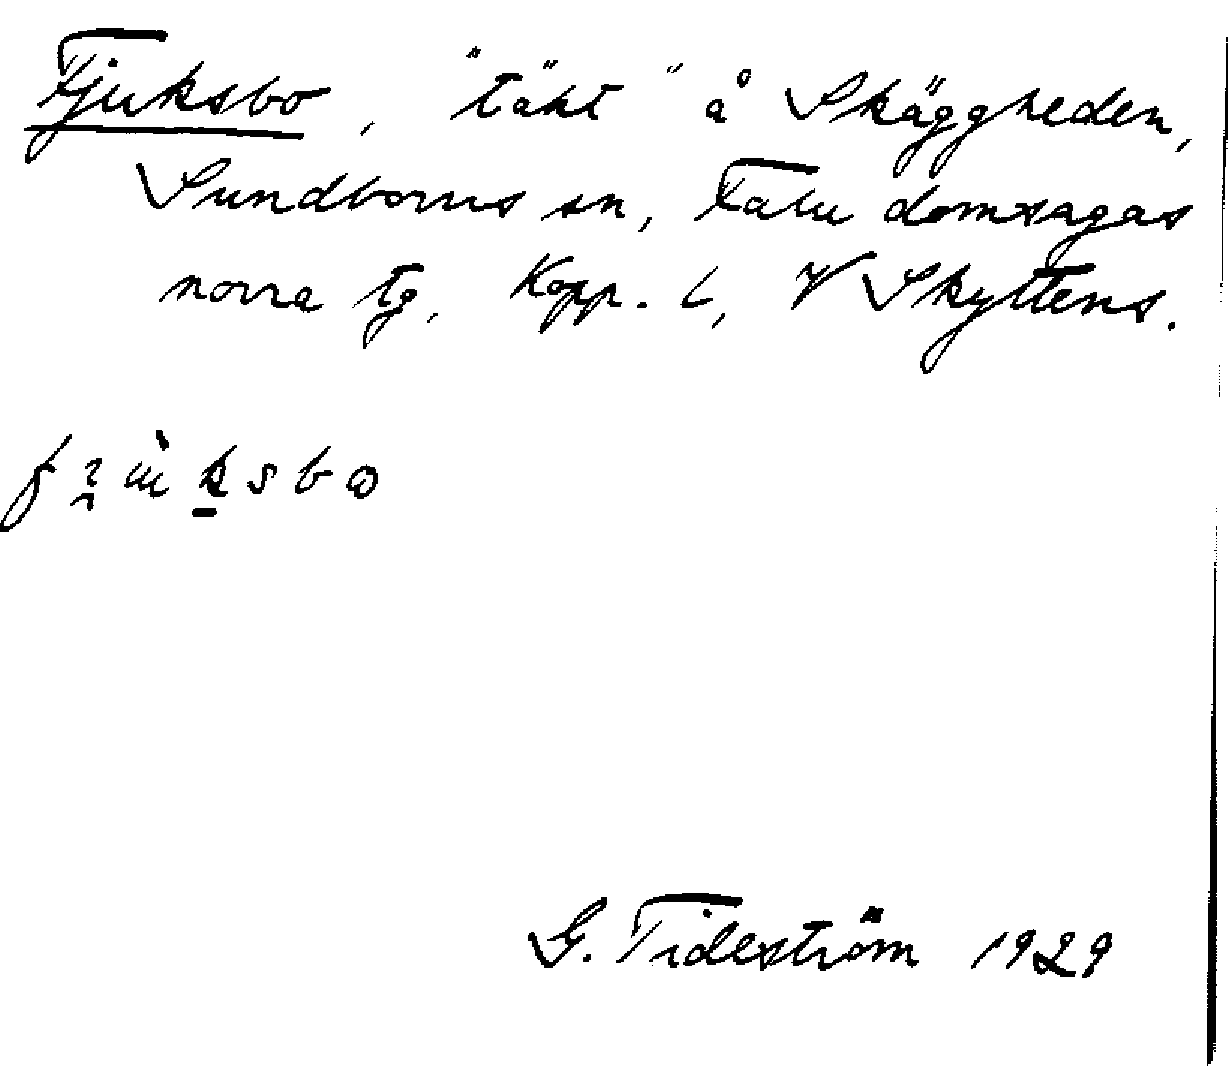 Fjuksbo, "täkt" å Skäggheden,
Sundborns sn, Falu domsagas
norra tg, Kopp. l, V Skyttens.
G. Tideström 1929